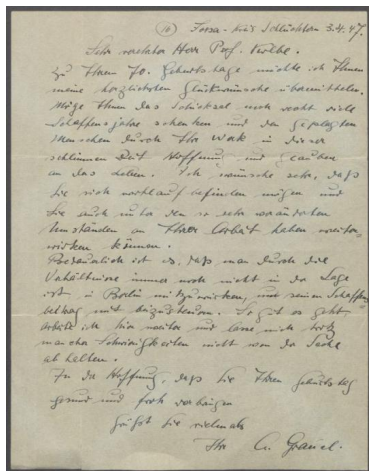 (10) Jossa - Kreis Schlüchtern 3.4.47.
Sehr verehrter Herr Prof. Kolbe.
Zu Ihrem 70. Geburtstage möchte ich Ihnen
meine herzlichsten Glückwünsche übermitteln.
Möge Ihnen das Schicksal noch recht viele
Schaffensjahre schenken und den geplagten
Menschen durch Ihr Werk in dieser
schlimmen Zeit Hoffnung und Glauben
an das Leben. Ich wünsche sehr, daß
Sie sich wohlauf befinden mögen und
Sie auch unter den so sehr veränderten
Umständen an Ihrer Arbeit haben weiter-
wirken können.
Bedauerlich ist es, daß man durch die
Verhältnisse immer noch nicht in der Lage
ist, in Berlin mitzuwirken, und seinen Schaffens-
beitrag mit beizusteuern. So gut es geht
arbeite ich hier weiter und lasse mich trotz
mancher Schwierigkeiten nicht von der Sache
abhalten.
In der Hoffnung, daß Sie Ihren Geburtstag
gesund und froh verbringen
grüßt Sie vielmals
Ihr